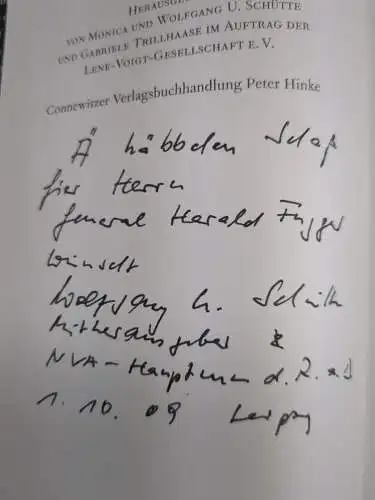 HERAUSGE
VON MONICA UND WOLFGANG U. SCHÜTTE
UND GABRIELE TRILLHAASE IM AUFTRAG DER
LENE-VOIGT-GESELLSCHAFT E. V.
Connewitzer Verlagsbuchhandlung Peter Hinke
Ä häbbchen
fier Herrn
General Harald
winscht
Wolfgang U. Schütte
Mitherausgeber &
NVA-Hauptmann d. R. a. D
1. 10. 09 Leipzig